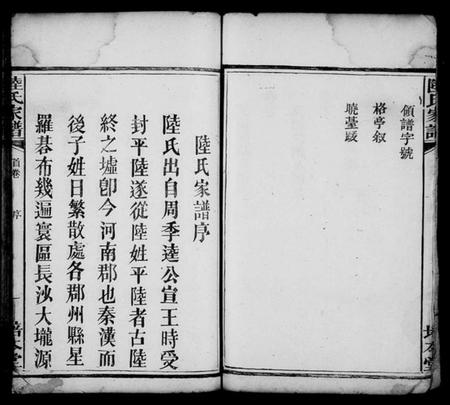 陸氏家譜
培本堂
領譜字號
格亭叙
曉臺跋
陸氏家譜序
陸氏出自周季逵公宣王時受
封平陸遂從陸姓平陸者古陸
終之墟卽今河南郡也秦漢而
後子姓日繁散處各郡州縣星
羅碁布幾遍寰區長沙大壠源
陸氏家譜
首卷
序
一
培本堂